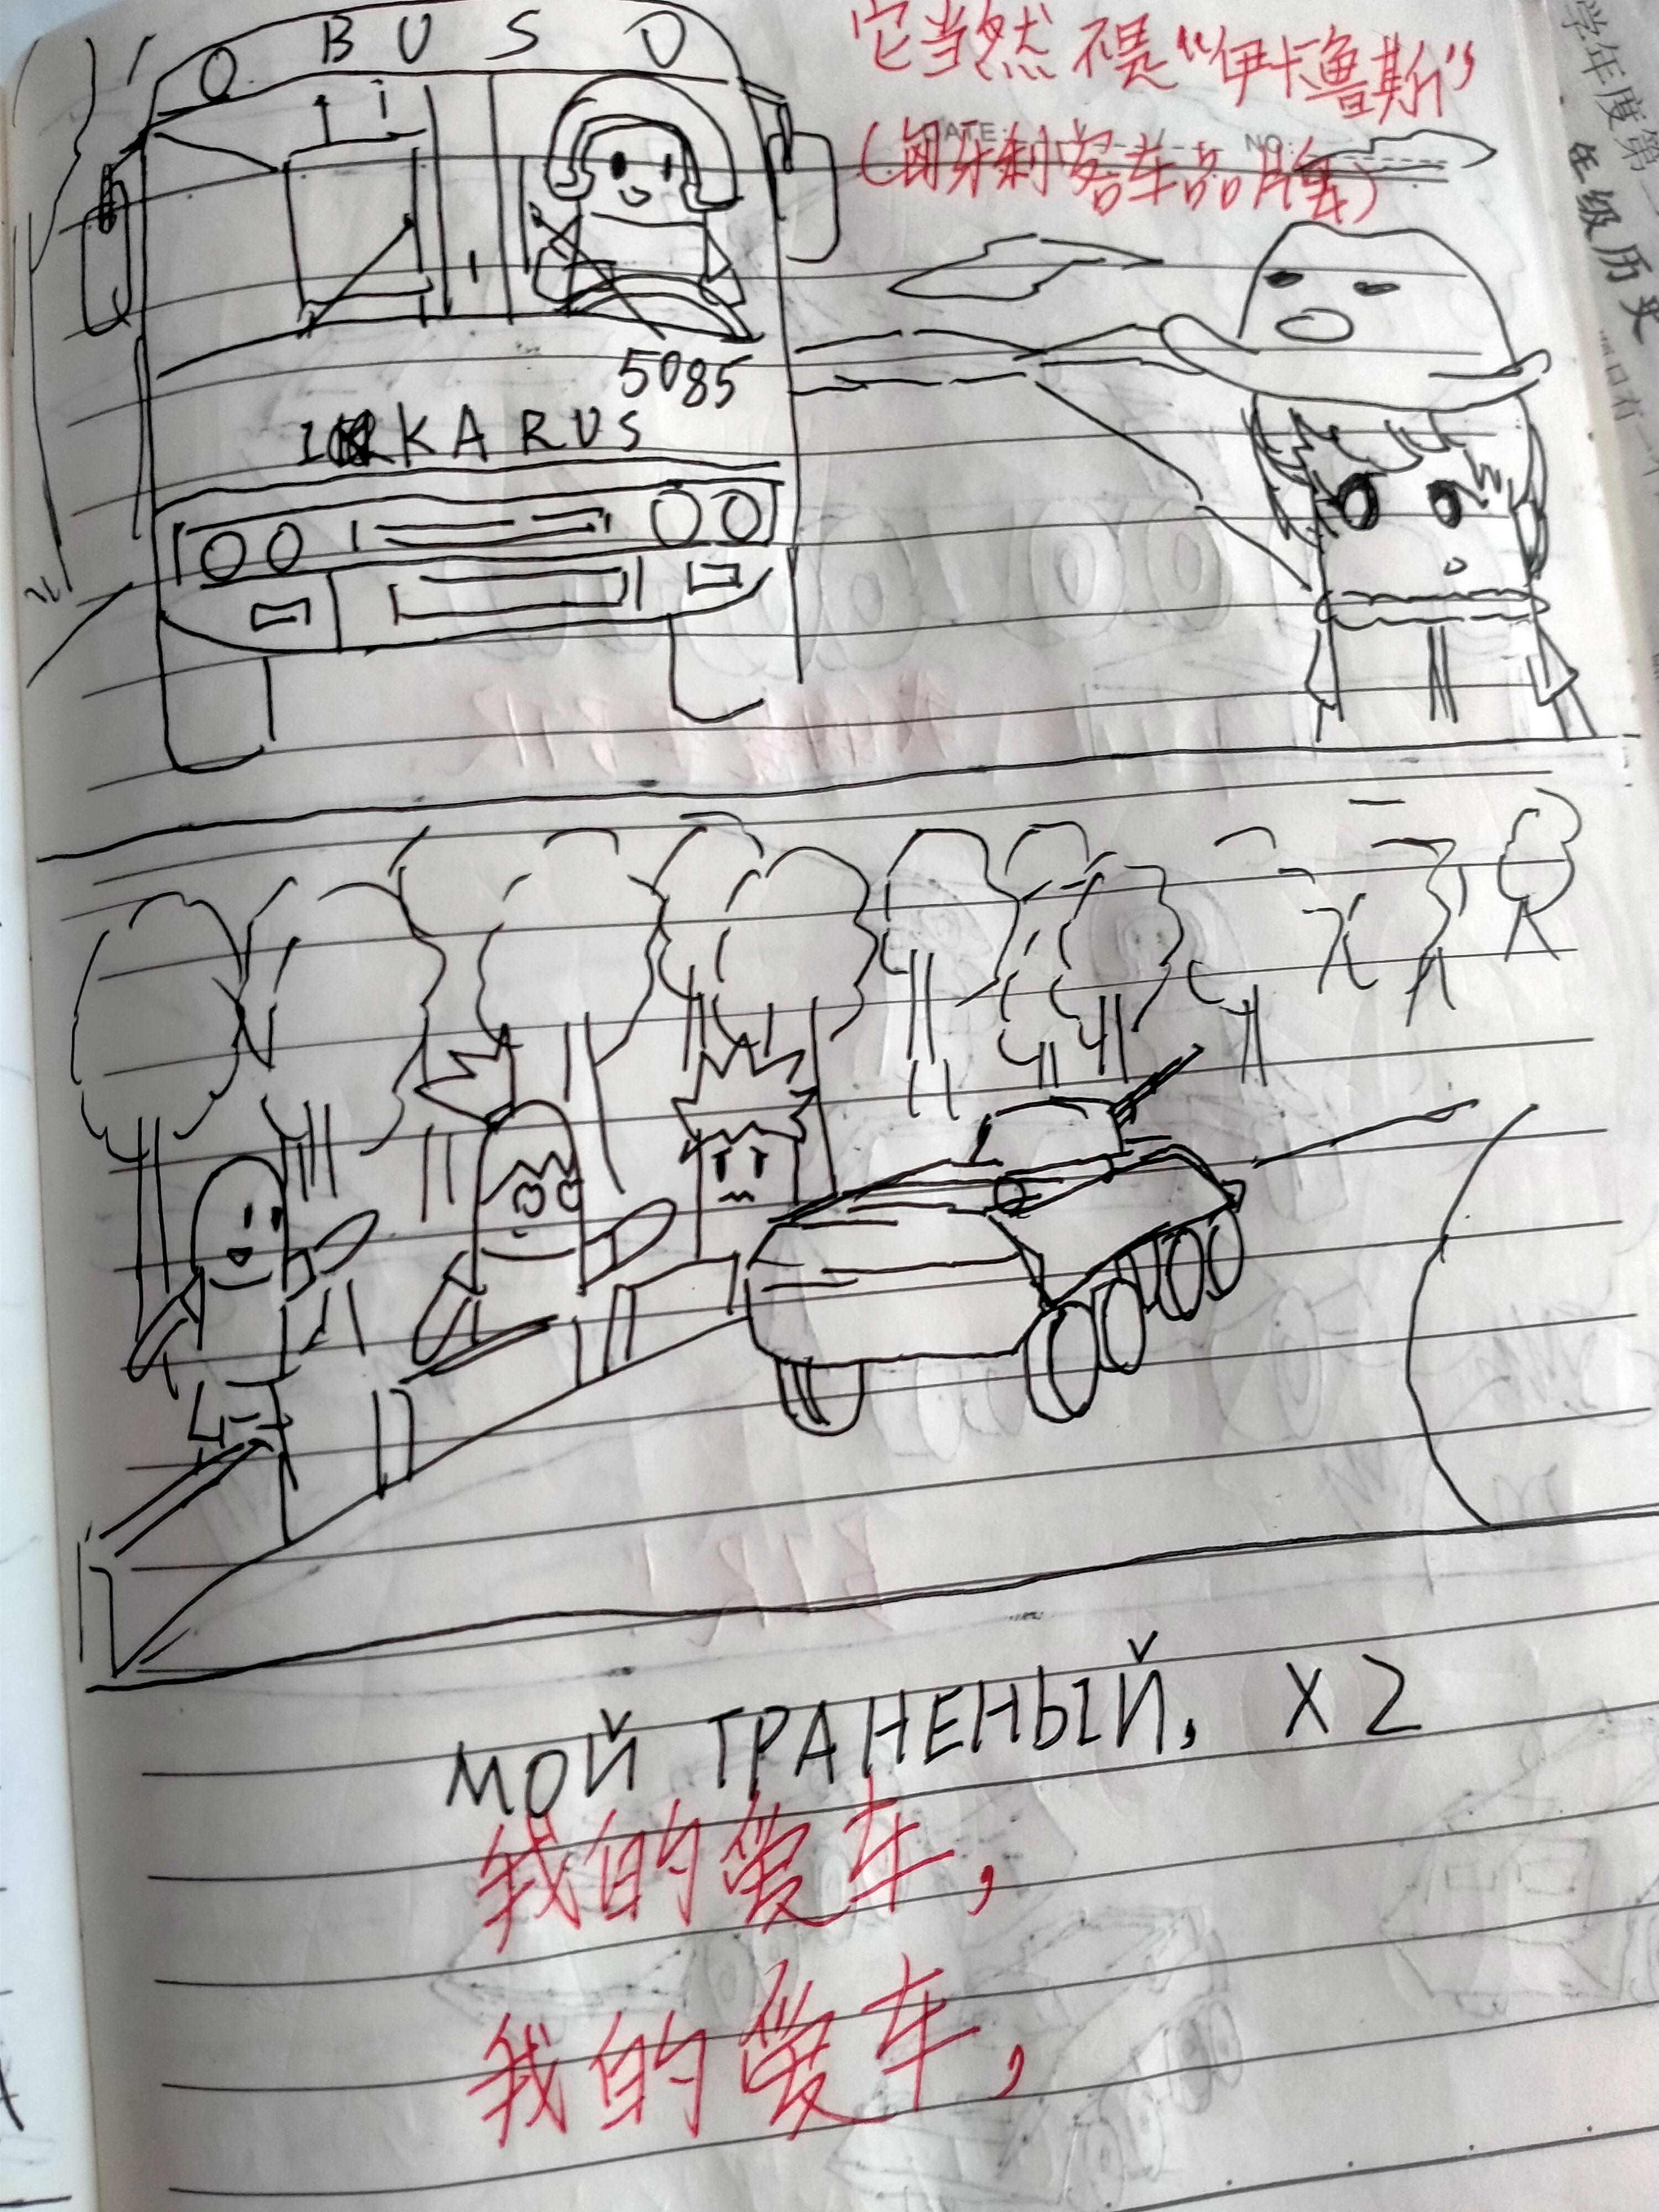 BUS
它当然不是“伊卡鲁斯”
DATE: NO:
(匈牙利客车品牌)
学年度第一
年级历史
5085
IKARUS
МОЙ ТРАНЕНЫЙ, X2
我的爱车,
我的爱车,